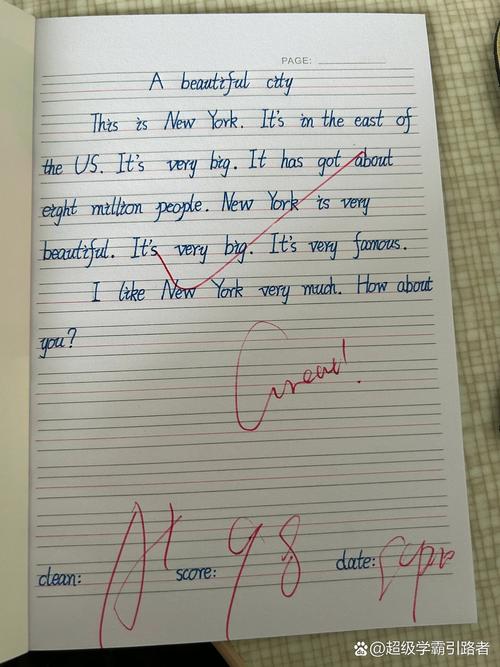 PAGE:
A beautiful city
This is New York. It's in the east of
the US. It's very big. It has got about
eight million people. New York is very
beautiful. It's very big. It's very famous.
I like New York very much. How about
you?
Great!
clean: A+ score: 98 date:
@超级学霸引路者